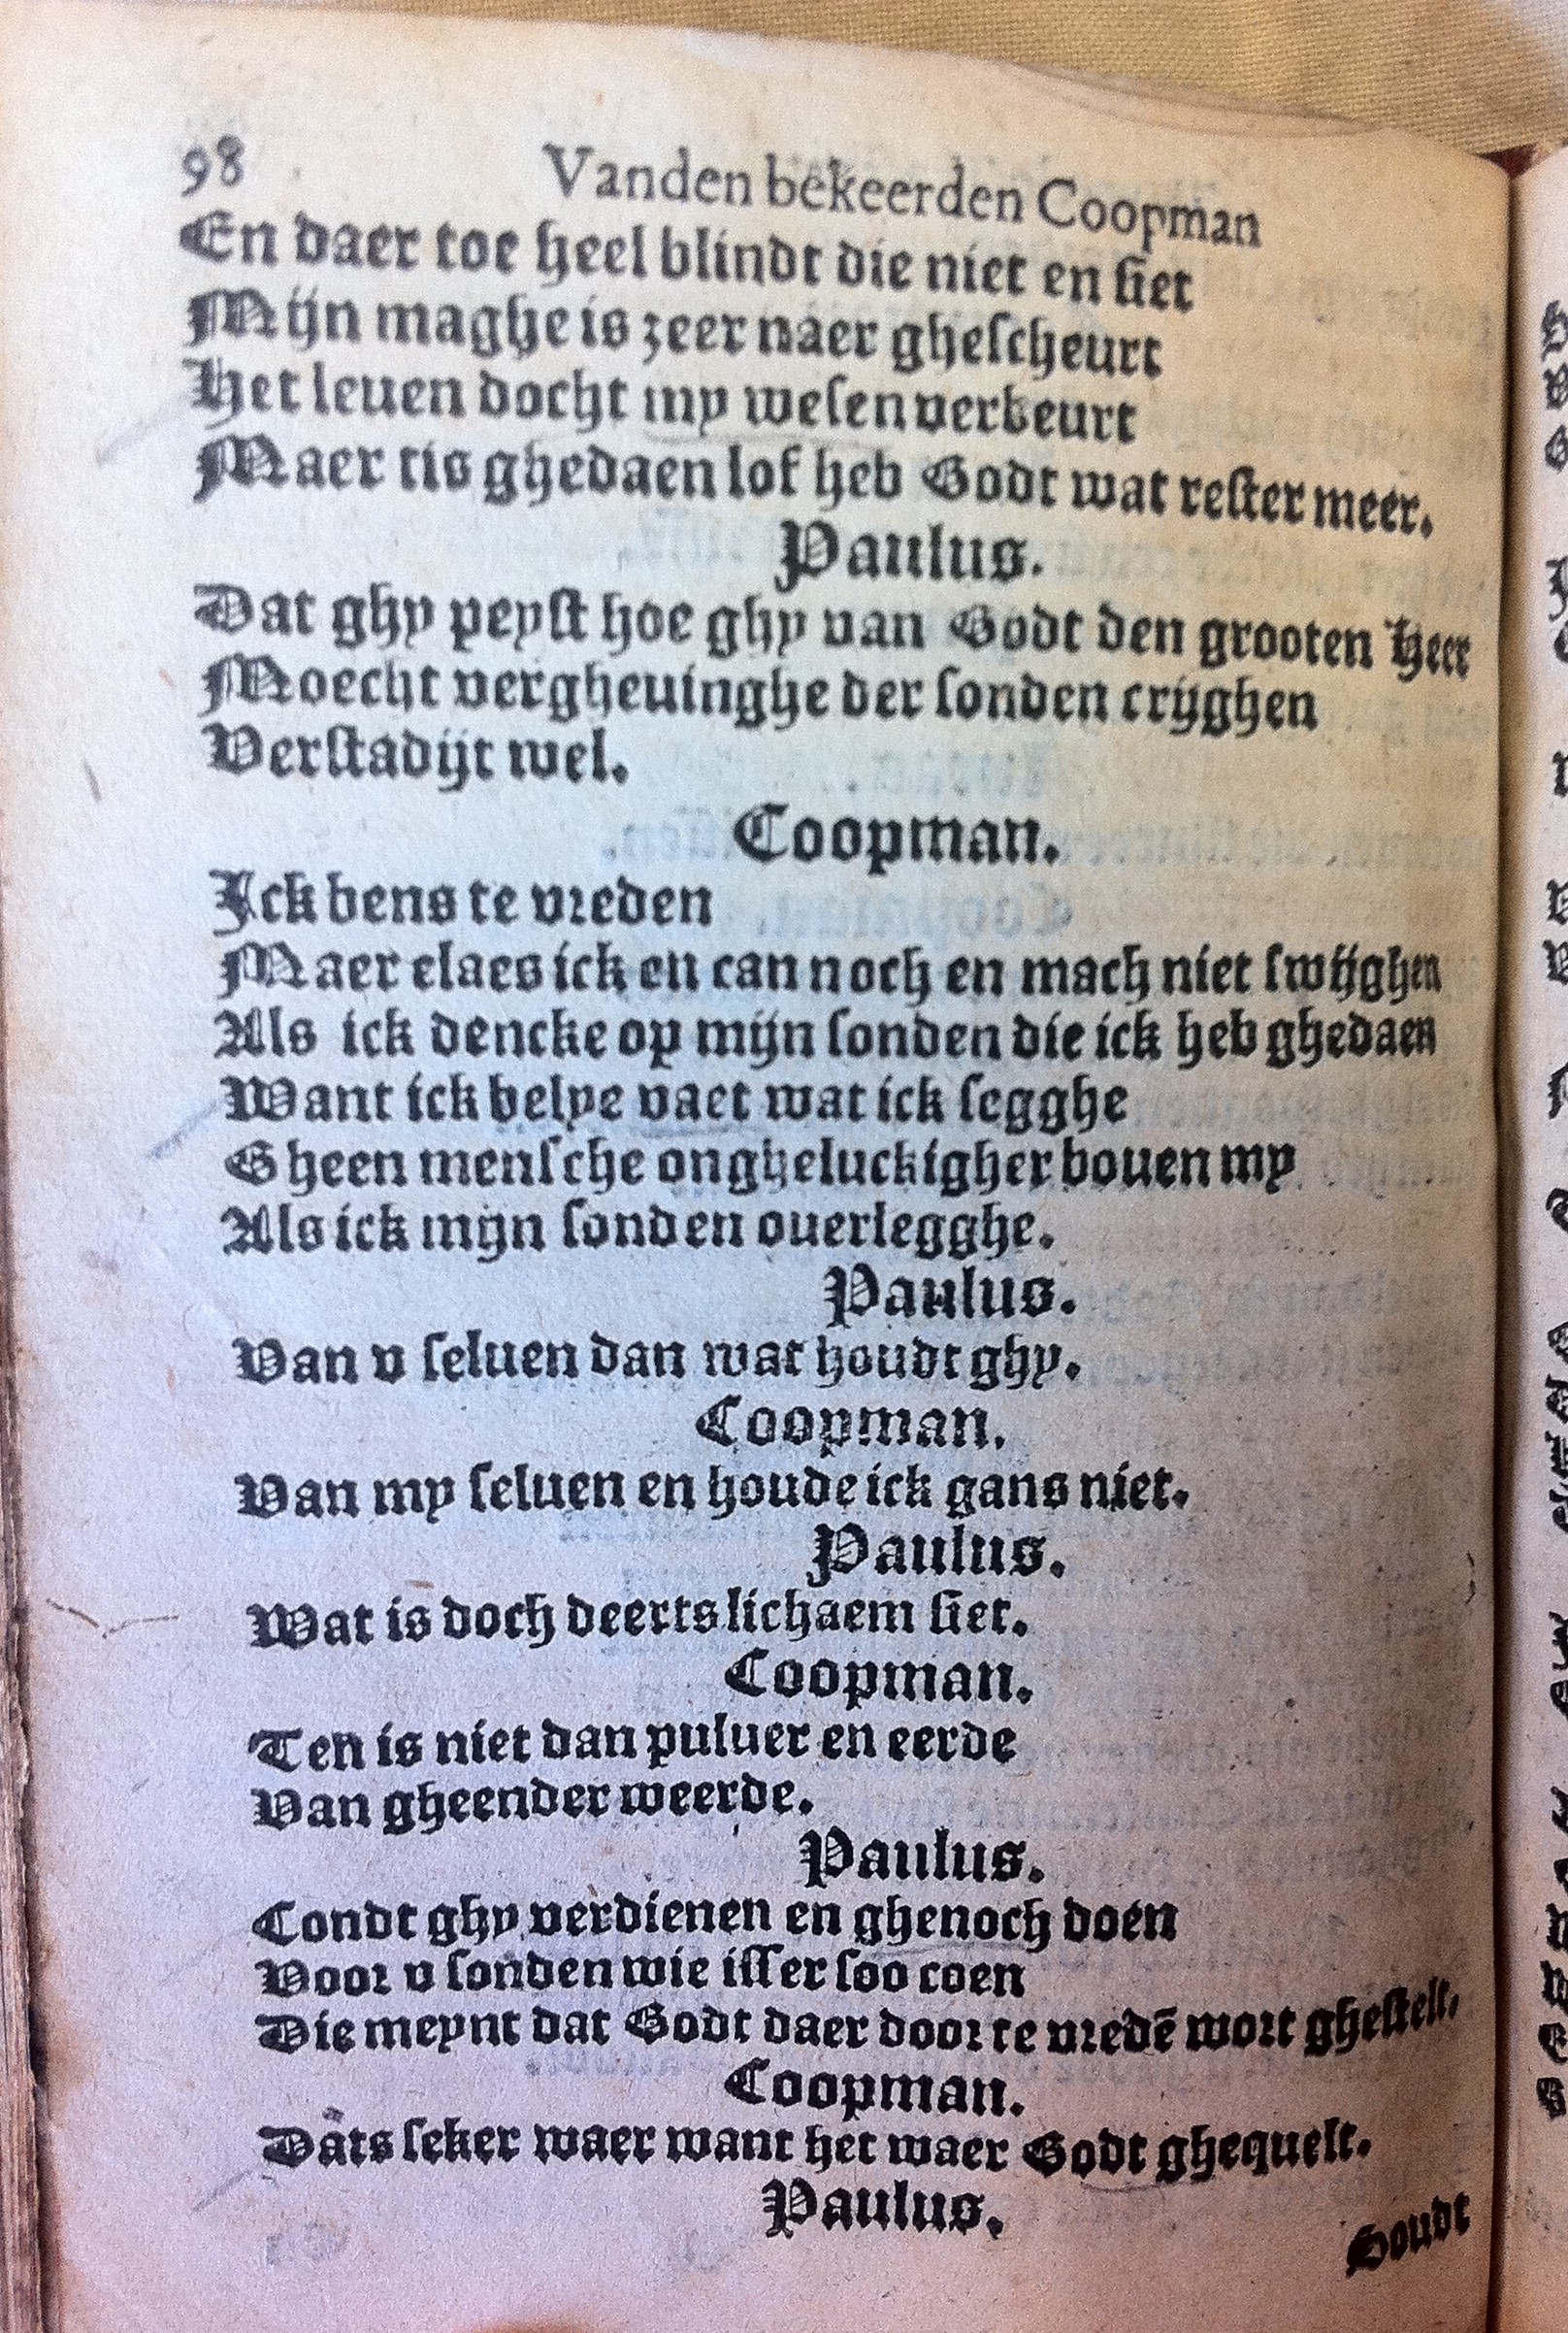 98 Vanden bekeerden Coopman
En daer toe heel blindt die niet en siet
Mijn maghe is zeer naer ghescheurt
Het leuen docht my wesen verbeurt
Maer tis ghedaen lof heb Godt wat rester meer.
Paulus.
Dat ghy peyst hoe ghy van Godt den grooten Heer
Moecht vergheuinghe der sonden crijghen
Verstadijt wel.
Coopman.
Ick bens te vreden
Maer elaes ick en can noch en mach niet swijghen
Als ick dencke op mijn sonden die ick heb ghedaen
Want ick belye vaet wat ick segghe
Gheen mensche ongheluckigher bouen my
Als ick mijn sonden ouerlegghe.
Paulus.
Van v seluen dan wat houdt ghy.
Coopman.
Van my seluen en houde ick gans niet.
Paulus.
Wat is doch deerts lichaem siet.
Coopman.
Ten is niet dan puluer en eerde
Van gheender weerde.
Paulus.
Condt ghy verdienen en ghenoch doen
Voor v sonden wie isser soo coen
Die meynt dat Godt daer door te vredē wort ghestelt.
Coopman.
Dats seker waer want het waer Godt ghequelt.
Paulus.
Houdt